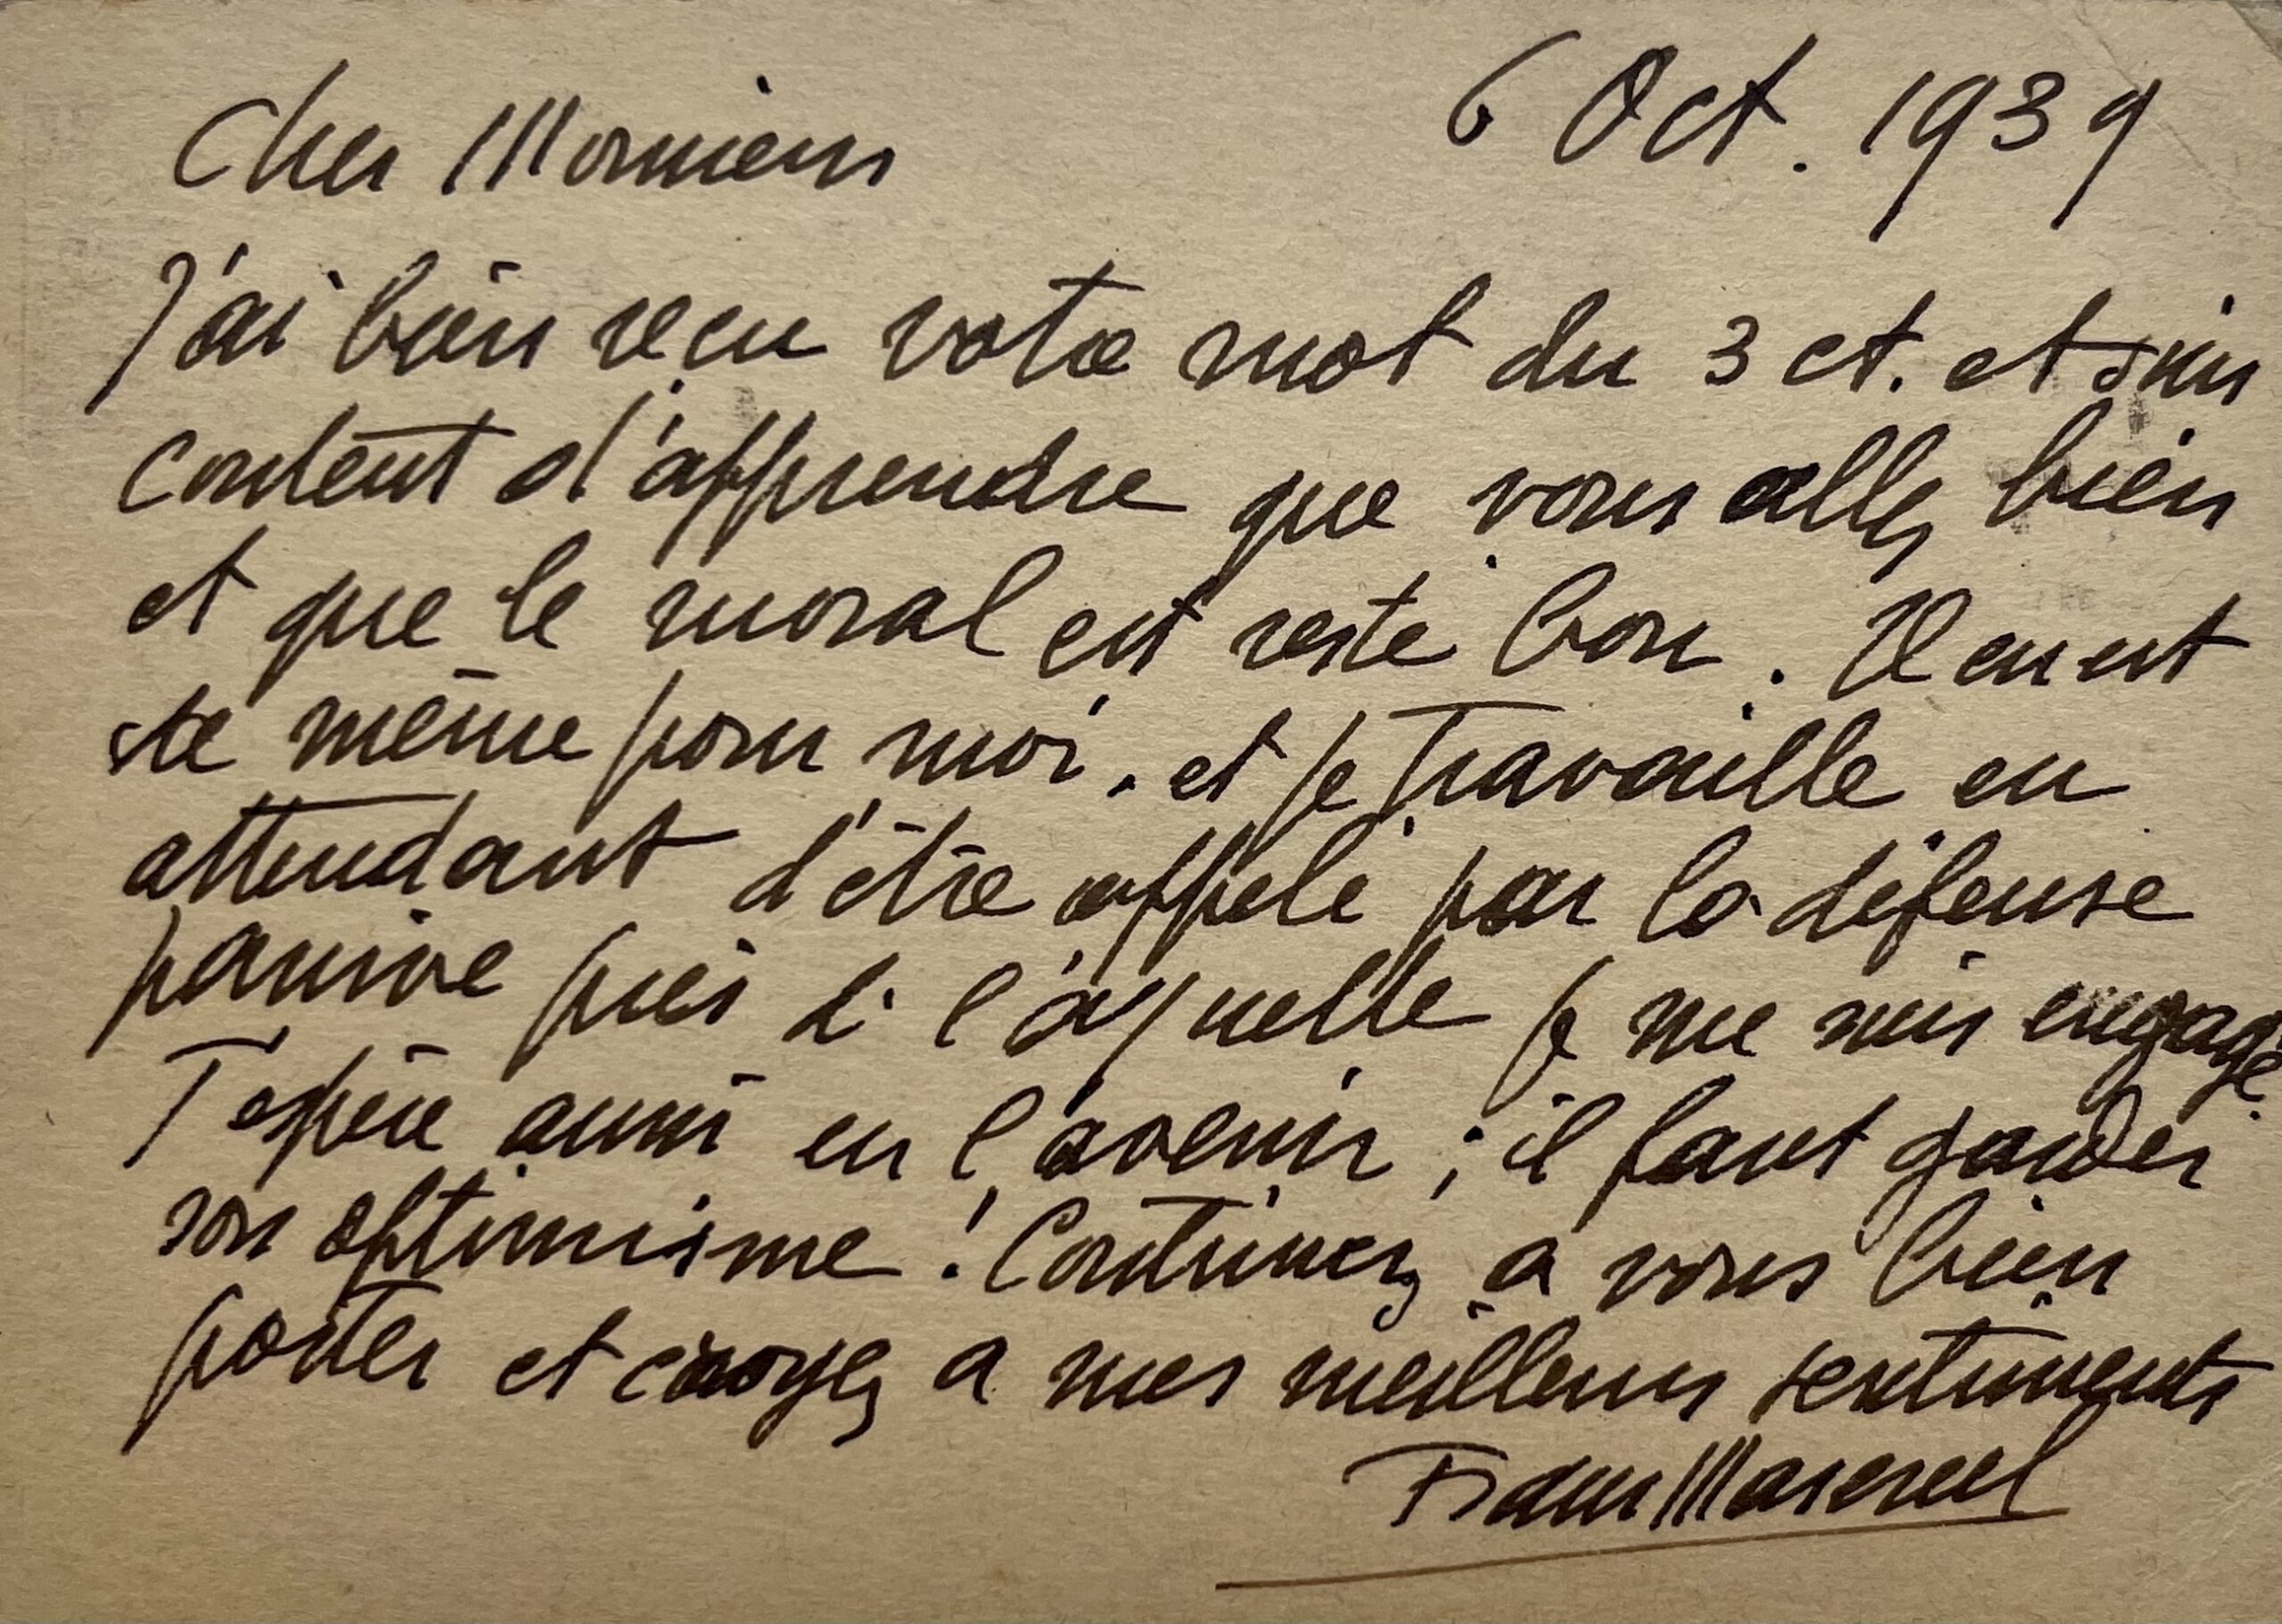 6 Oct. 1939
Cher Monsieur
J'ai bien reçu votre mot du 3 ct. et suis
content d'apprendre que vous allez bien
et que le moral est resté bon. Il en est
de même pour moi. et je travaille en
attendant d'être appelé par la défense
passive près de laquelle je me suis engagé.
J'espère aussi en l'avenir ; il faut garder
son optimisme ! Continuez à vous bien
porter et croyez à mes meilleurs sentiments
Frans Masereel